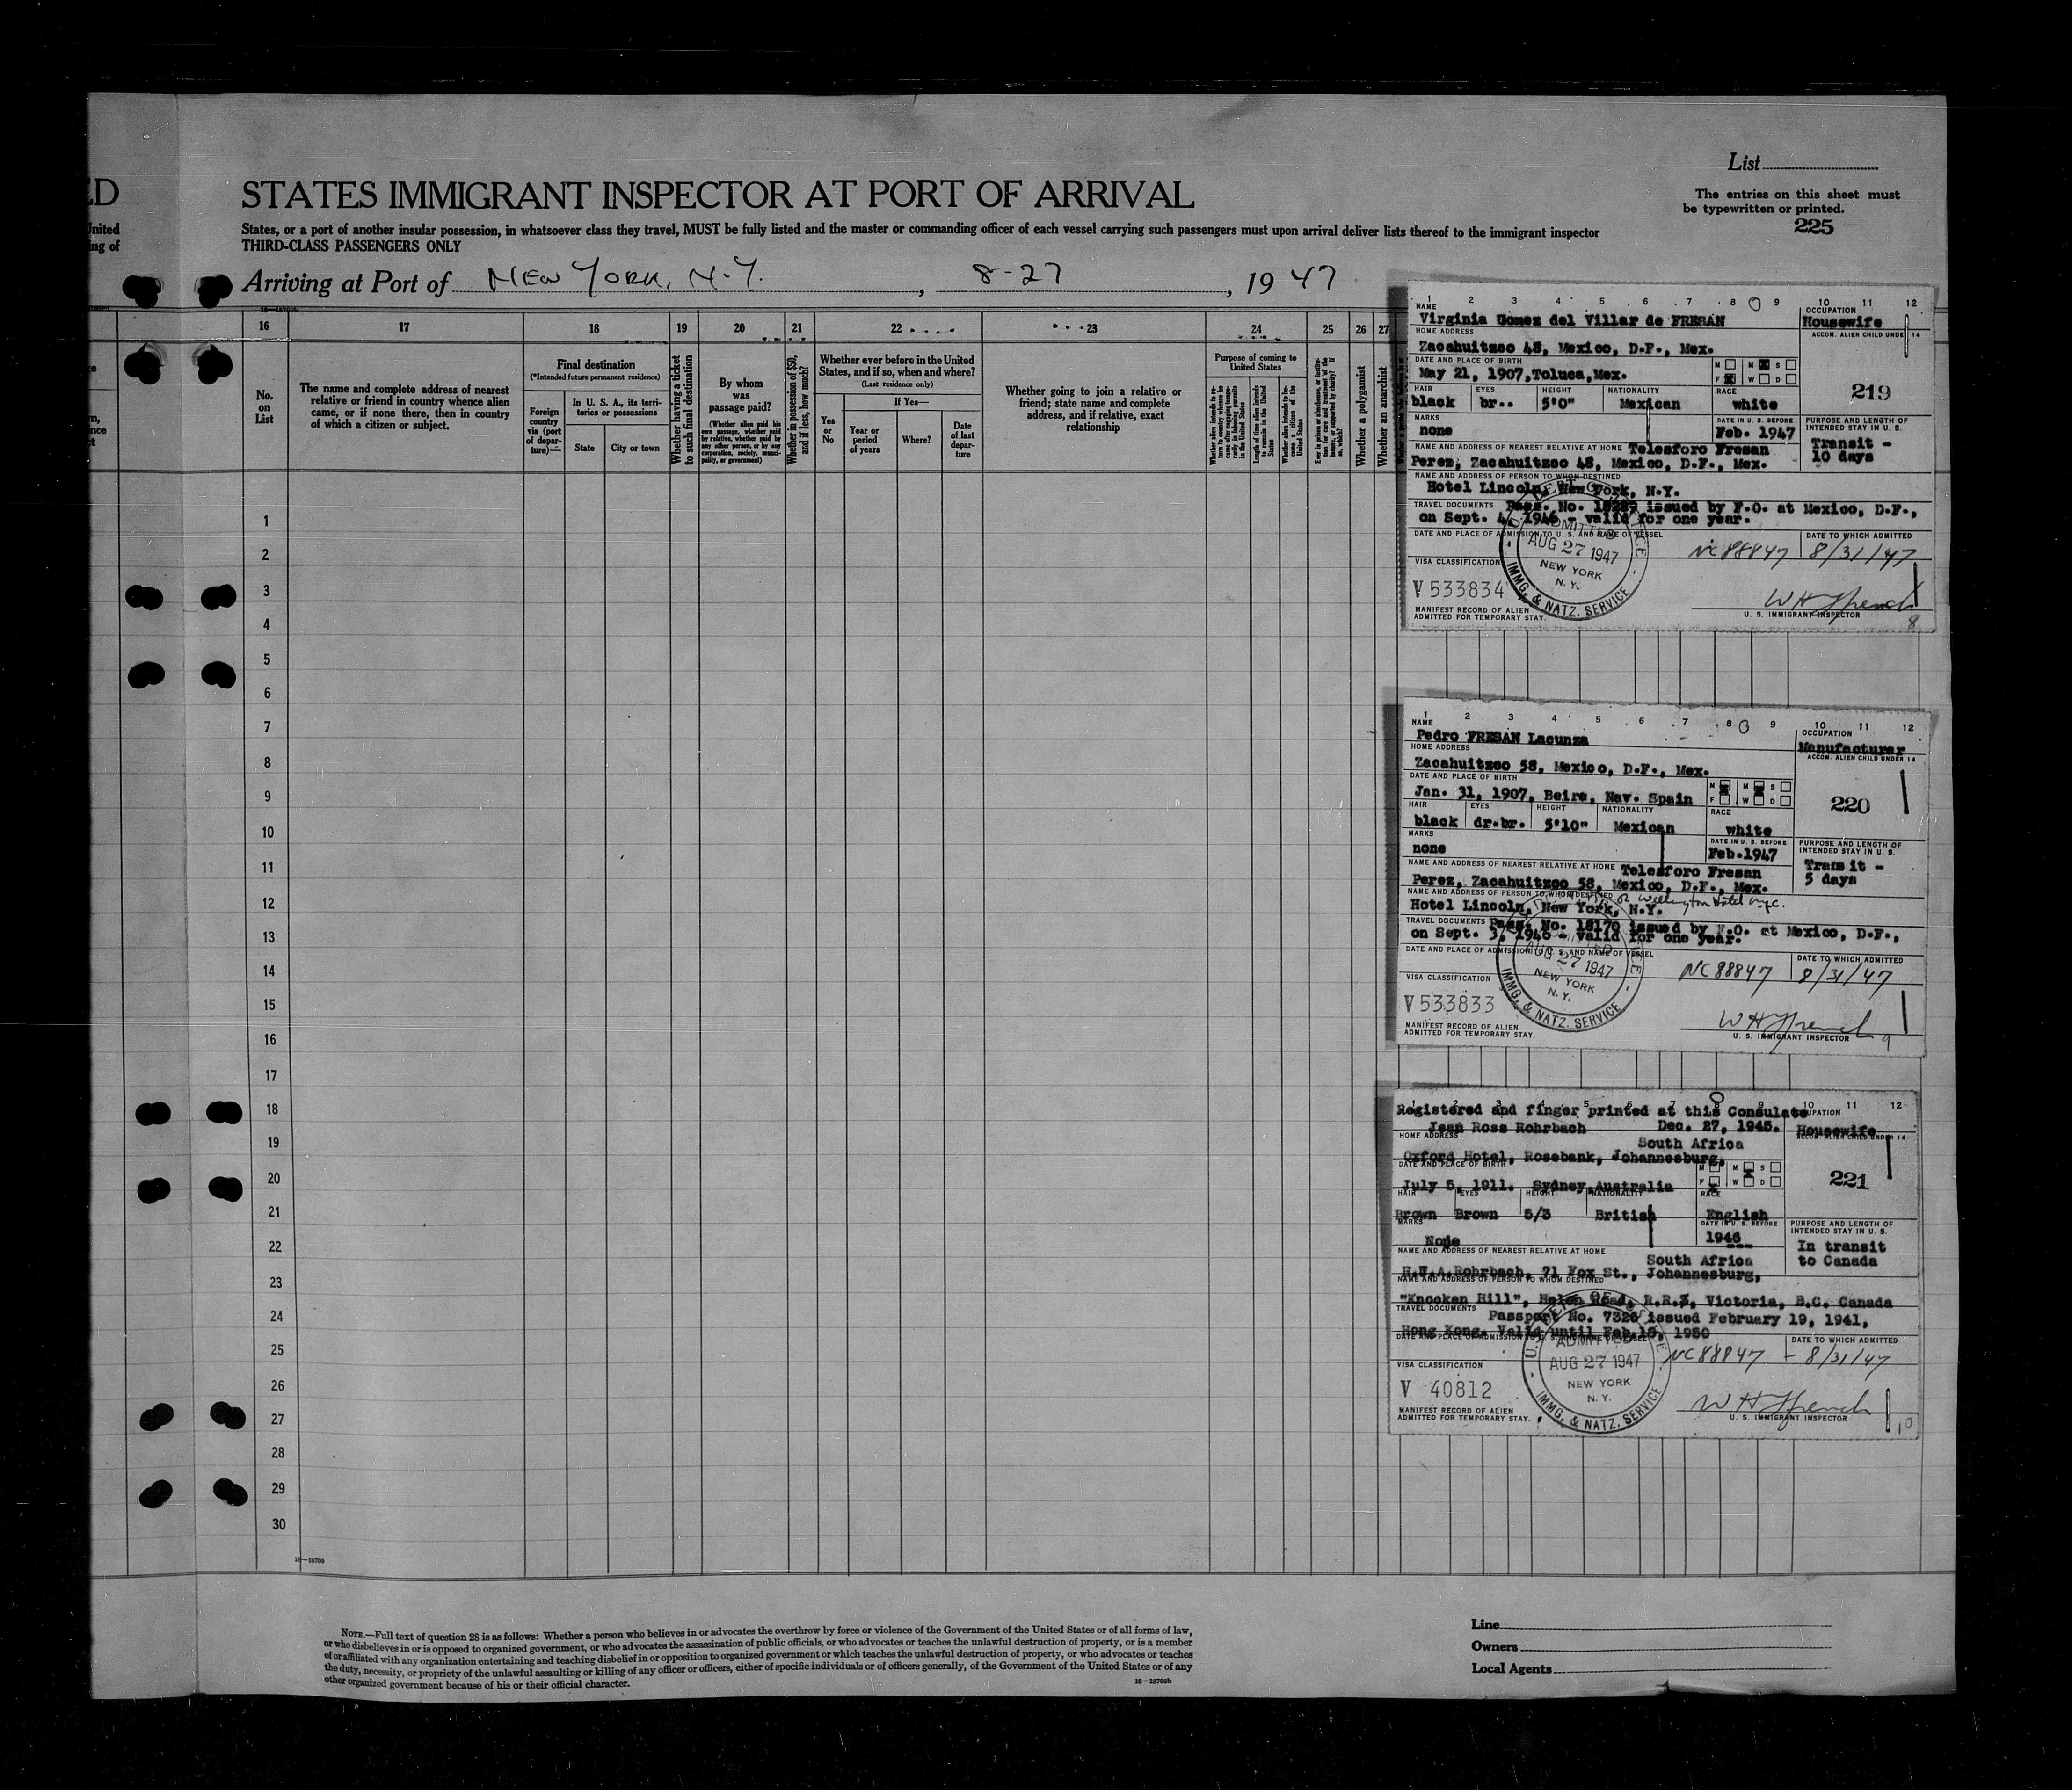 List
ED
STATES IMMIGRANT INSPECTOR AT PORT OF ARRIVAL
The entries on this sheet must
be typewritten or printed.
225
United
States, or a port of another insular possession, in whatsoever class they travel, MUST be fully listed and the master or commanding officer of each vessel carrying such passengers must upon arrival deliver lists thereof to the immigrant inspector
ing of
THIRD-CLASS PASSENGERS ONLY
Arriving at Port of NEW YORK, N.Y., 8-27, 1947
16 17 18 19 20 21 22 23 24 25 26 27
No.
on
List
The name and complete address of nearest
relative or friend in country whence alien
came, or if none there, then in country
of which a citizen or subject.
Final destination
(*Intended future permanent residence)
Foreign
country
via (port
of depar-
ture)—
In U. S. A., its terri-
tories or possessions
State
City or town
Whether having a ticket
to such final destination
By whom
was
passage paid?
(Whether alien paid his
own passage, whether paid
by relative, whether paid by
any other person, or by any
corporation, society, munici-
pality, or government)
Whether in possession of $50,
and if less, how much?
Whether ever before in the United
States, and if so, when and where?
(Last residence only)
Yes
or
No
If Yes—
Year or
period
of years
Where?
Date
of last
depar-
ture
Whether going to join a relative or
friend; state name and complete
address, and if relative, exact
relationship
Purpose of coming to
United States
Whether alien intends to re-
turn to country whence he
came after engaging tempo-
rarily in laboring pursuits
in the United States
Length of time alien intends
to remain in the United
States
Whether alien intends to be-
come a citizen of the
United States
Whether a polygamist
Whether an anarchist
1
2
3
4
5
6
7
8
9
10
11
12
13
14
15
16
17
18
19
20
21
22
23
24
25
26
27
28
29
30
16—18709
1 2 3 4 5 6 7 8 9 10 11 12
NAME
Virginia Gomez del Villar de FRESAN
OCCUPATION
Housewife
HOME ADDRESS
ACCOM. ALIEN CHILD UNDER 14
Zacahuitzco 48, Mexico, D.F., Mex.
DATE AND PLACE OF BIRTH
May 21, 1907, Toluca, Mex.
M M S
F W D
219
HAIR EYES HEIGHT NATIONALITY RACE
black br.. 5'0" Mexican white
MARKS
none
DATE IN U. S. BEFORE
Feb. 1947
PURPOSE AND LENGTH OF
INTENDED STAY IN U. S.
Transit -
10 days
NAME AND ADDRESS OF NEAREST RELATIVE AT HOME Telesforo Fresan
Perez, Zacahuitzco 48, Mexico, D.F., Mex.
NAME AND ADDRESS OF PERSON TO WHOM DESTINED
Hotel Lincoln, New York, N.Y.
TRAVEL DOCUMENTS Pass. No. issued by F.O. at Mexico, D.F.,
on Sept. 4, 1946 - valid for one year.
DATE AND PLACE OF ADMISSION TO U. S. AND NAME OF VESSEL
DATE TO WHICH ADMITTED
NC 88847 8/31/47
ADMITTED
AUG 27 1947
NEW YORK
N. Y.
IMMG. & NATZ. SERVICE
VISA CLASSIFICATION
V 533834
W H French
MANIFEST RECORD OF ALIEN
ADMITTED FOR TEMPORARY STAY.
U. S. IMMIGRANT INSPECTOR
8
1 2 3 4 5 6 7 8 9 10 11 12
NAME
Pedro FRESAN Lacunza
OCCUPATION
Manufacturer
HOME ADDRESS
ACCOM. ALIEN CHILD UNDER 14
Zacahuitzco 58, Mexico, D.F., Mex.
DATE AND PLACE OF BIRTH
Jan. 31, 1907, Beire, Nav. Spain
M M S
F W D
220
HAIR EYES HEIGHT NATIONALITY RACE
black dr.br. 5'10" Mexican white
MARKS
none
DATE IN U. S. BEFORE
Feb.1947
PURPOSE AND LENGTH OF
INTENDED STAY IN U. S.
Transit -
5 days
NAME AND ADDRESS OF NEAREST RELATIVE AT HOME Telesforo Fresan
Perez, Zacahuitzco 58, Mexico, D.F., Mex.
NAME AND ADDRESS OF PERSON TO WHOM DESTINED or Wellington Hotel nyc.
Hotel Lincoln, New York, N.Y.
TRAVEL DOCUMENTS Pass. No. 18170 issued by F.O. at Mexico, D.F.,
on Sept. 3, 1946 - valid for one year.
DATE AND PLACE OF ADMISSION TO U. S. AND NAME OF VESSEL
DATE TO WHICH ADMITTED
NC 88847 8/31/47
AUG 27 1947
NEW YORK
N. Y.
IMMG. & NATZ. SERVICE
VISA CLASSIFICATION
V 533833
W H French
MANIFEST RECORD OF ALIEN
ADMITTED FOR TEMPORARY STAY.
U. S. IMMIGRANT INSPECTOR
9
Registered and finger printed at this Consulate
Dec. 27, 1945.
Jean Ross Rohrbach
OCCUPATION
Housewife
HOME ADDRESS
South Africa
Oxford Hotel, Rosebank, Johannesburg,
DATE AND PLACE OF BIRTH
July 5, 1911. Sydney, Australia
M M S
F W D
221
HAIR EYES HEIGHT NATIONALITY RACE
Brown Brown 5/3 British English
MARKS
None
DATE IN U. S. BEFORE
1946
PURPOSE AND LENGTH OF
INTENDED STAY IN U. S.
In transit
to Canada
NAME AND ADDRESS OF NEAREST RELATIVE AT HOME
South Africa
H.W.A.Rohrbach, 71 Fox St., Johannesburg,
NAME AND ADDRESS OF PERSON TO WHOM DESTINED
"Knocken Hill", Helen Road, R.R.3, Victoria, B.C. Canada
TRAVEL DOCUMENTS
Passport No. 7326 issued February 19, 1941,
Hong Kong. Valid until Feb.18, 1950
DATE TO WHICH ADMITTED
NC 88847 - 8/31/47
ADMITTED
AUG 27 1947
NEW YORK
N. Y.
IMMG. & NATZ. SERVICE
VISA CLASSIFICATION
V 40812
W H French
MANIFEST RECORD OF ALIEN
ADMITTED FOR TEMPORARY STAY.
U. S. IMMIGRANT INSPECTOR
10
NOTE.—Full text of question 28 is as follows: Whether a person who believes in or advocates the overthrow by force or violence of the Government of the United States or of all forms of law,
or who disbelieves in or is opposed to organized government, or who advocates the assassination of public officials, or who advocates or teaches the unlawful destruction of property, or is a member
of or affiliated with any organization entertaining and teaching disbelief in or opposition to organized government or which teaches the unlawful destruction of property, or who advocates or teaches
the duty, necessity, or propriety of the unlawful assaulting or killing of any officer or officers, either of specific individuals or of officers generally, of the Government of the United States or of any
other organized government because of his or their official character.
16—18709b
Line
Owners
Local Agents